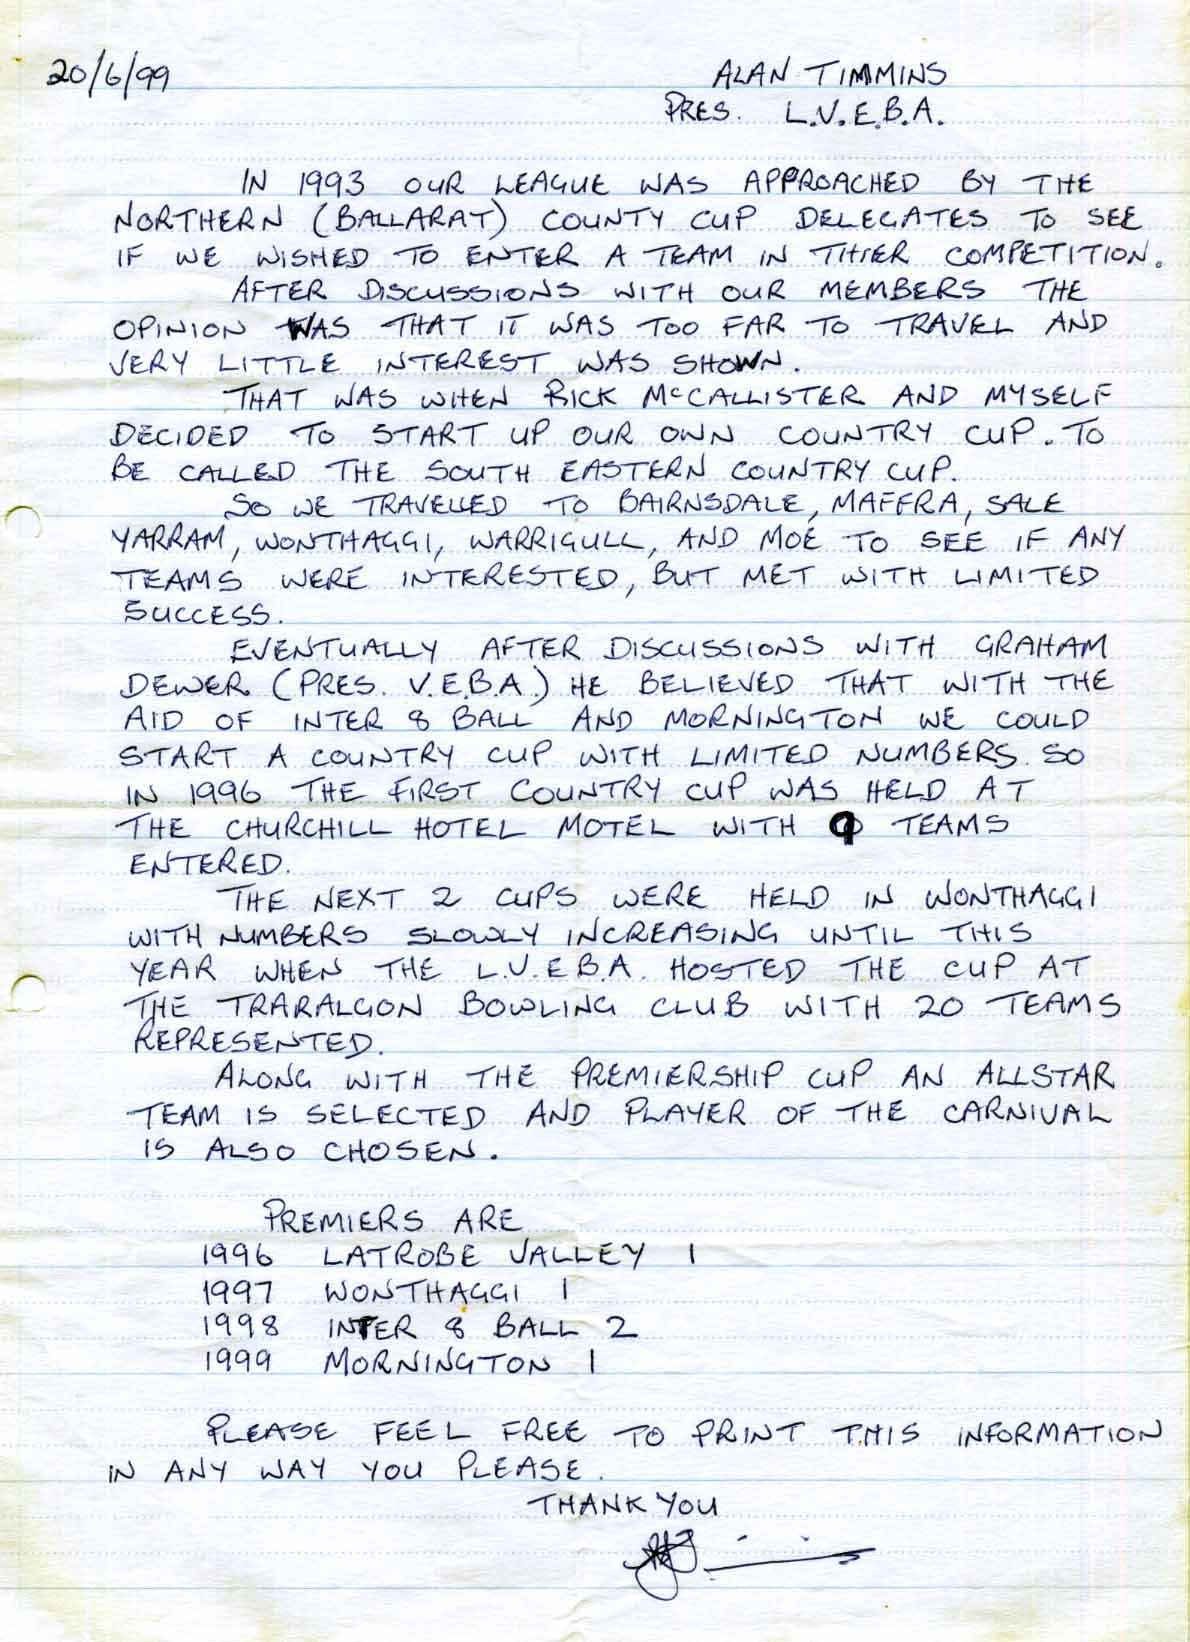 20/6/99
ALAN TIMMINS
PRES. L.V.E.B.A.
IN 1993 OUR LEAGUE WAS APPROACHED BY THE
NORTHERN (BALLARAT) COUNTY CUP DELEGATES TO SEE
IF WE WISHED TO ENTER A TEAM IN THIER COMPETITION.
AFTER DISCUSSIONS WITH OUR MEMBERS THE
OPINION WAS THAT IT WAS TOO FAR TO TRAVEL AND
VERY LITTLE INTEREST WAS SHOWN.
THAT WAS WHEN RICK McCALLISTER AND MYSELF
DECIDED TO START UP OUR OWN COUNTRY CUP. TO
BE CALLED THE SOUTH EASTERN COUNTRY CUP.
SO WE TRAVELLED TO BAIRNSDALE, MAFFRA, SALE
YARRAM, WONTHAGGI, WARRIGULL, AND MOE TO SEE IF ANY
TEAMS WERE INTERESTED, BUT MET WITH LIMITED
SUCCESS.
EVENTUALLY AFTER DISCUSSIONS WITH GRAHAM
DEWER (PRES. V.E.B.A.) HE BELIEVED THAT WITH THE
AID OF INTER 8 BALL AND MORNINGTON WE COULD
START A COUNTRY CUP WITH LIMITED NUMBERS. SO
IN 1996 THE FIRST COUNTRY CUP WAS HELD AT
THE CHURCHILL HOTEL MOTEL WITH 9 TEAMS
ENTERED.
THE NEXT 2 CUPS WERE HELD IN WONTHAGGI
WITH NUMBERS SLOWLY INCREASING UNTIL THIS
YEAR WHEN THE L.V.E.B.A. HOSTED THE CUP AT
THE TRARALGON BOWLING CLUB WITH 20 TEAMS
REPRESENTED.
ALONG WITH THE PREMIERSHIP CUP AN ALLSTAR
TEAM IS SELECTED AND PLAYER OF THE CARNIVAL
IS ALSO CHOSEN.
PREMIERS ARE
1996 LATROBE VALLEY 1
1997 WONTHAGGI 1
1998 INTER 8 BALL 2
1999 MORNINGTON 1
PLEASE FEEL FREE TO PRINT THIS INFORMATION
IN ANY WAY YOU PLEASE.
THANK YOU